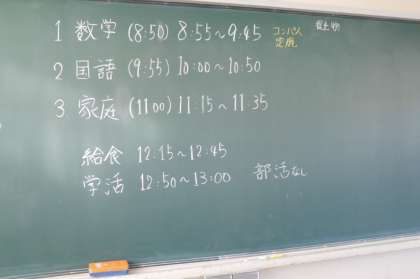 1 数学 (8:50) 8:55～9:45 コンパス
定規
2 国語 (9:55) 10:00～10:50
3 家庭 (11:00) 11:15～11:35
給食 12:15～12:45
学活 12:50～13:00 部活なし